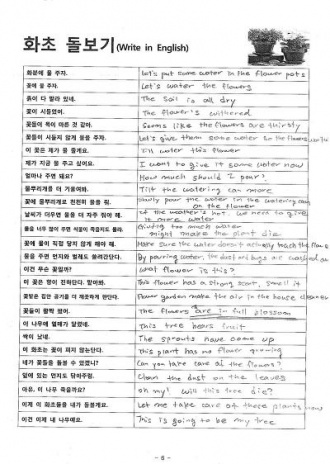 화초 돌보기(Write in English)
화분에 물 주자. Let's put some water in the flower pots
꽃에 물 주자. Let's water the flowers
흙이 다 말라 있네. The soil is all dry
꽃이 시들었어. The flower's withered
꽃들이 목이 마른 것 같아. Seems like the flowers are thirsty
꽃들이 시들지 않게 물을 주자. Let's give them some water so the flowers
이 꽃은 제가 물 줄게요. I'll water this flower
제가 지금 물 주고 싶어요. I want to give it some water now
얼마나 주면 돼요? How much should I pour?
물뿌리개를 더 기울여봐. Tilt the watering can more
꽃에 물뿌리개로 천천히 물을 줘. Slowly pour the water in the watering can on the flower
날씨가 더우면 물을 더 자주 줘야 해. If the weather's hot, we need to give it more water
물을 너무 많이 주면 식물이 죽을지도 몰라. Giving too much water might make the plant die
꽃에 물이 직접 닿지 않게 해야 해. Make sure the water doesn't actually reach the
물을 주면 먼지와 벌레도 쓸려간단다. By pouring water, the dust and bugs are washed
이건 무슨 꽃일까? What flower is this?
이 꽃은 향이 진하단다. 맡아봐. This flower has a strong scent, smell it
꽃밭은 집안 공기를 더 깨끗하게 만든단다. Flower garden make the air in the house cleaner
꽃들이 활짝 폈어. The flowers are in full blossom
이 나무에 열매가 달렸네. This tree bears fruit
싹이 났네. The sprouts have come up
이 화초는 꽃이 피지 않는단다. This plant has no flower growing
네가 꽃들을 돌볼 수 있겠니? Can you take care of the flowers?
잎에 있는 먼지도 닦아주렴. Clean the dust on the leaves
아유, 이 나무 죽을까요? oh my! will this tree die?
이제 이 화초들을 내가 돌볼게요. Let me take care of these plants
이건 이제 내 나무예요. This is going to be my tree